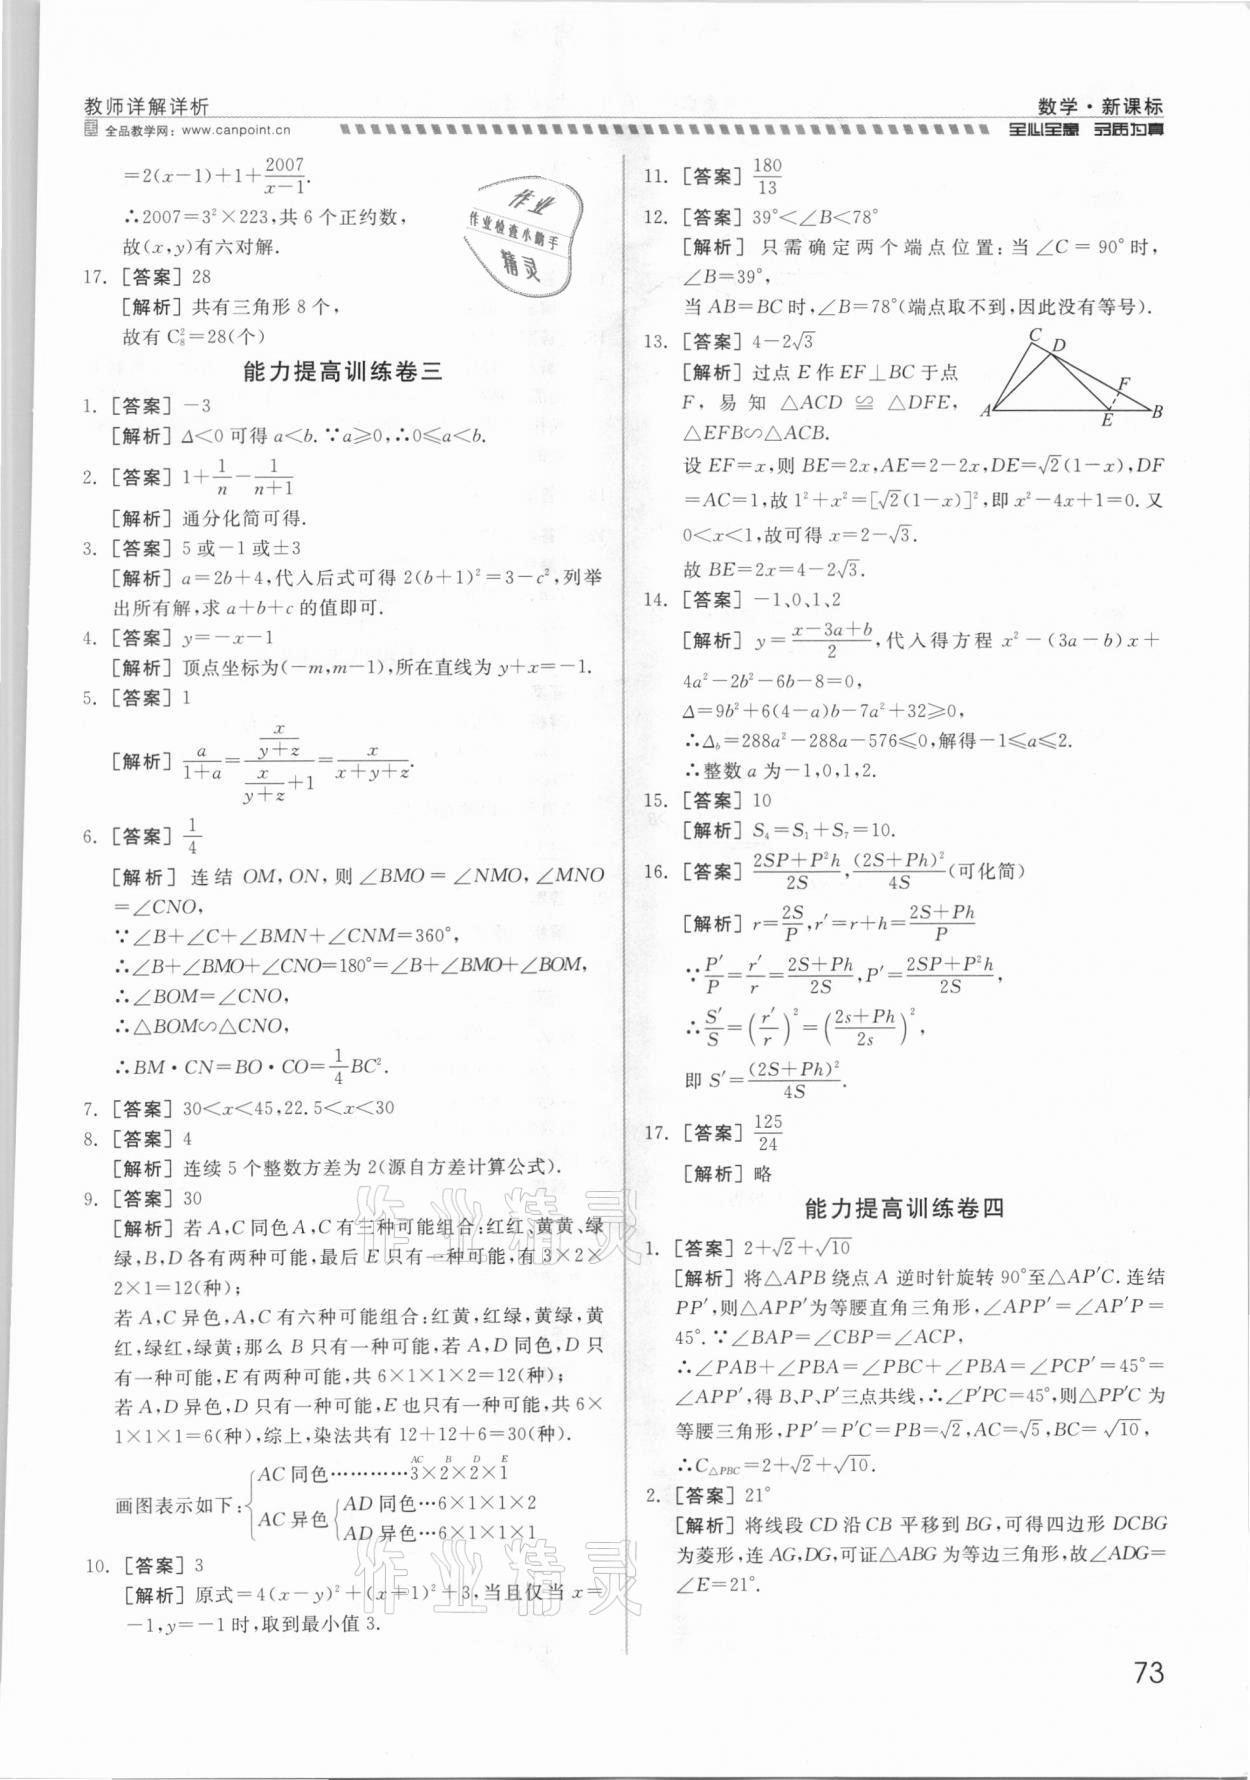 教师详解详析
全品教学网：www.canpoint.cn
数学·新课标
全心全意 品质为真
=2(x-1)+1+2007/(x-1).
∴2007=3²×223,共6个正约数,
故(x,y)有六对解.
17. [答案] 28
[解析] 共有三角形8个,
故有C₈²=28(个)
能力提高训练卷三
1. [答案] -3
[解析] Δ<0可得a<b.∵a≥0,∴0≤a<b.
2. [答案] 1+1/n-1/(n+1)
[解析] 通分化简可得.
3. [答案] 5或-1或±3
[解析] a=2b+4,代入后式可得2(b+1)²=3-c²,列举
出所有解,求a+b+c的值即可.
4. [答案] y=-x-1
[解析] 顶点坐标为(-m,m-1),所在直线为y+x=-1.
5. [答案] 1
[解析] a/(1+a)=(x/(y+z))/(x/(y+z)+1)=x/(x+y+z).
6. [答案] 1/4
[解析] 连结OM,ON,则∠BMO=∠NMO,∠MNO
=∠CNO,
∵∠B+∠C+∠BMN+∠CNM=360°,
∴∠B+∠BMO+∠CNO=180°=∠B+∠BMO+∠BOM,
∴∠BOM=∠CNO,
∴△BOM∽△CNO,
∴BM·CN=BO·CO=1/4BC².
7. [答案] 30<x<45,22.5<x<30
8. [答案] 4
[解析] 连续5个整数方差为2(源自方差计算公式).
9. [答案] 30
[解析] 若A,C同色A,C有三种可能组合:红红、黄黄、绿
绿,B,D各有两种可能,最后E只有一种可能,有3×2×
2×1=12(种);
若A,C异色,A,C有六种可能组合:红黄,红绿,黄绿,黄
红,绿红,绿黄;那么B只有一种可能,若A,D同色,D只
有一种可能,E有两种可能,共6×1×1×2=12(种);
若A,D异色,D只有一种可能,E也只有一种可能,共6×
1×1×1=6(种),综上,染法共有12+12+6=30(种).
AC B D E
AC同色…………3×2×2×1
画图表示如下:
AC异色
AD同色…6×1×1×2
AD异色…6×1×1×1
10. [答案] 3
[解析] 原式=4(x-y)²+(x+1)²+3,当且仅当x=
-1,y=-1时,取到最小值3.
作业
作业检查小帮手
精灵
11. [答案] 180/13
12. [答案] 39°<∠B<78°
[解析] 只需确定两个端点位置:当∠C=90°时,
∠B=39°,
当AB=BC时,∠B=78°(端点取不到,因此没有等号).
13. [答案] 4-2√3
[解析] 过点E作EF⊥BC于点
F,易知△ACD≌△DFE,
△EFB∽△ACB.
C
D
F
A
E
B
设EF=x,则BE=2x,AE=2-2x,DE=√2(1-x),DF
=AC=1,故1²+x²=[√2(1-x)]²,即x²-4x+1=0.又
0<x<1,故可得x=2-√3.
故BE=2x=4-2√3.
14. [答案] -1、0、1、2
[解析] y=(x-3a+b)/2,代入得方程x²-(3a-b)x+
4a²-2b²-6b-8=0,
Δ=9b²+6(4-a)b-7a²+32≥0,
∴Δb=288a²-288a-576≤0,解得-1≤a≤2.
∴整数a为-1,0,1,2.
15. [答案] 10
[解析] S₄=S₁+S₇=10.
16. [答案] (2SP+P²h)/2S,(2S+Ph)²/4S(可化简)
[解析] r=2S/P,r′=r+h=(2S+Ph)/P
∵P′/P=r′/r=(2S+Ph)/2S,P′=(2SP+P²h)/2S,
∴S′/S=(r′/r)²=((2s+Ph)/2s)²,
即S′=(2S+Ph)²/4S.
17. [答案] 125/24
[解析] 略
能力提高训练卷四
1. [答案] 2+√2+√10
[解析] 将△APB绕点A逆时针旋转90°至△AP′C.连结
PP′,则△APP′为等腰直角三角形,∠APP′=∠AP′P=
45°.∵∠BAP=∠CBP=∠ACP,
∴∠PAB+∠PBA=∠PBC+∠PBA=∠PCP′=45°=
∠APP′,得B、P、P′三点共线,∴∠P′PC=45°,则△PP′C为
等腰三角形,PP′=P′C=PB=√2,AC=√5,BC=√10,
∴C△PBC=2+√2+√10.
2. [答案] 21°
[解析] 将线段CD沿CB平移到BG,可得四边形DCBG
为菱形,连AG,DG,可证△ABG为等边三角形,故∠ADG=
∠E=21°.
作业精灵
作业精灵
73